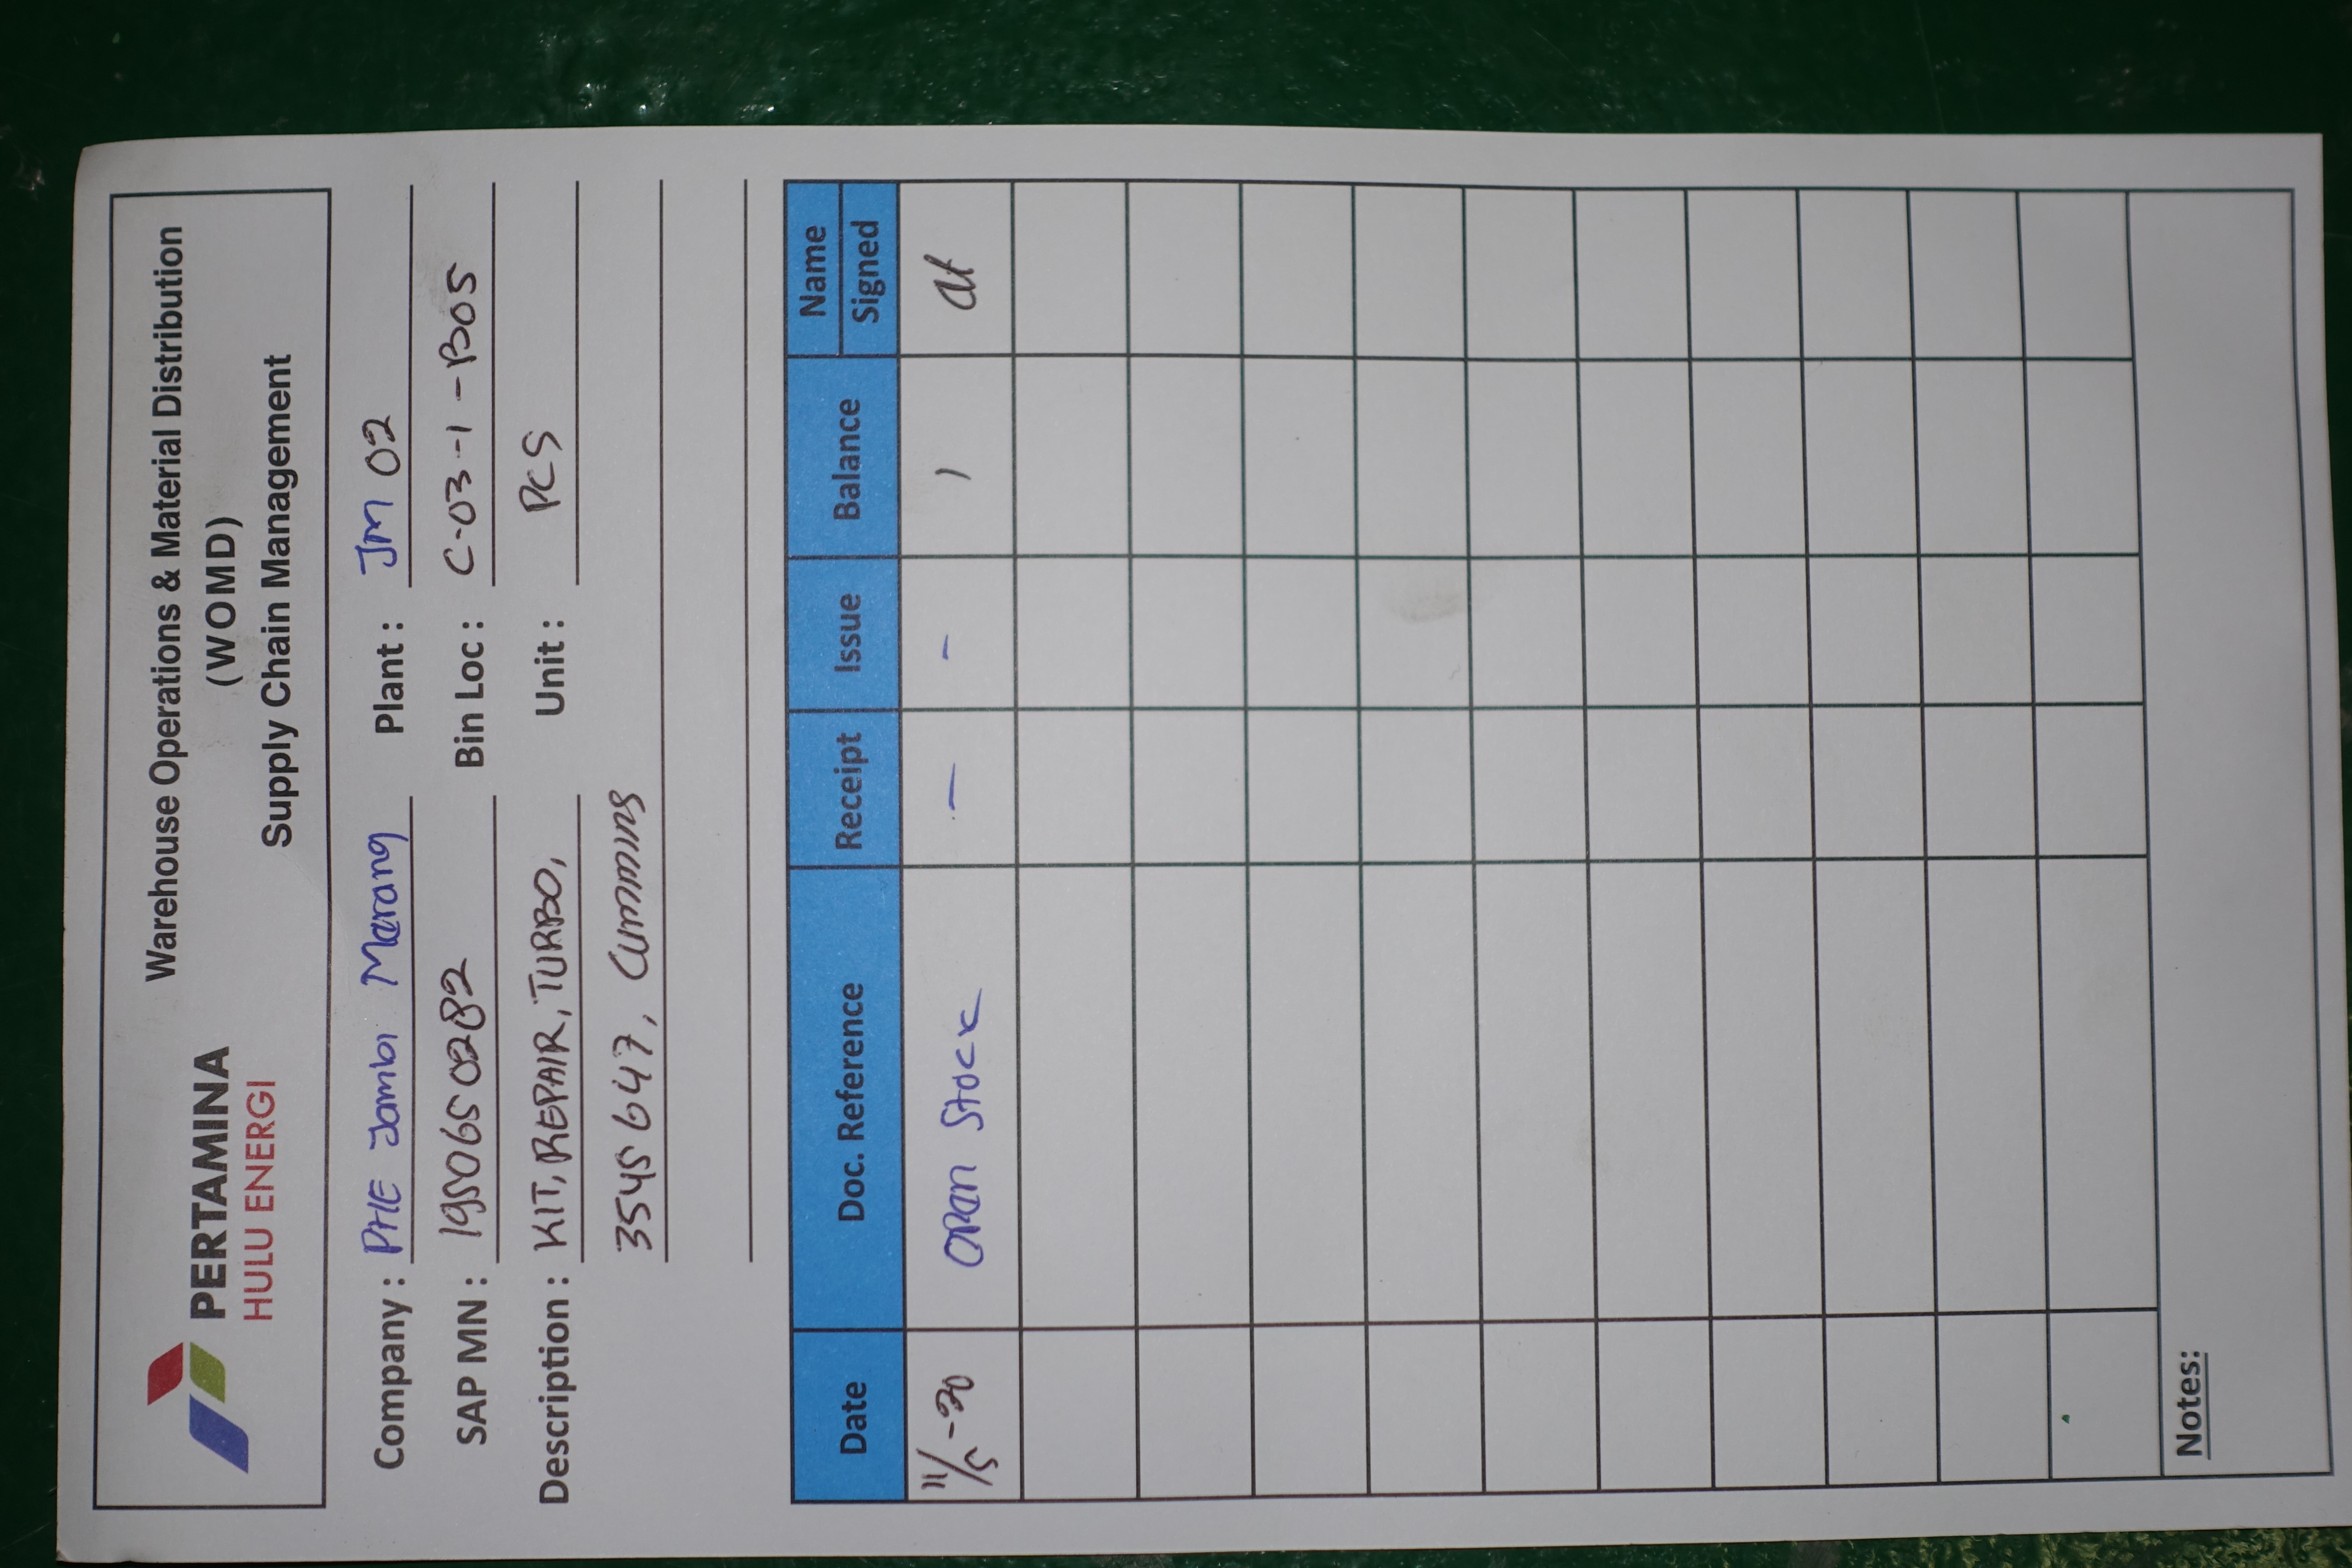 PERTAMINA
HULU ENERGI
Warehouse Operations & Material Distribution
(WOMD)
Supply Chain Management
Company : PHE Jambi Merang Plant : JM 02
SAP MN : 1950650282 Bin Loc : C-03-1-B05
Description : KIT, REPAIR, TURBO, Unit : PCS
3545647, Cummins
Date Doc. Reference Receipt Issue Balance Name
Signed
11/5-20 OPan Stock - - 1
Notes: